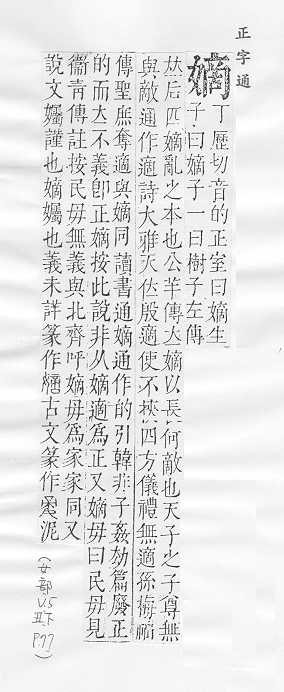 正字通
嫡丁歷切音的正室曰嫡生
子曰嫡子一曰樹子左傳
𠀤后匹嫡亂之本也公羊傳立嫡以長何敵也天子之子尊無
與敵通作適詩大雅天位殷適使不挾四方儀禮無適孫
傳聖庶奪適與嫡同讀書通嫡通作的引韓非子姦劫篇廢正
的而立不義卽正嫡按此說非从嫡適爲正又嫡毋曰民毋見
衞靑傳註按民毋無義與北齊呼嫡毋爲家家同又
說文孎謹也嫡孎也義未詳篆作古文篆作
(女部
V.5
下
P.77)